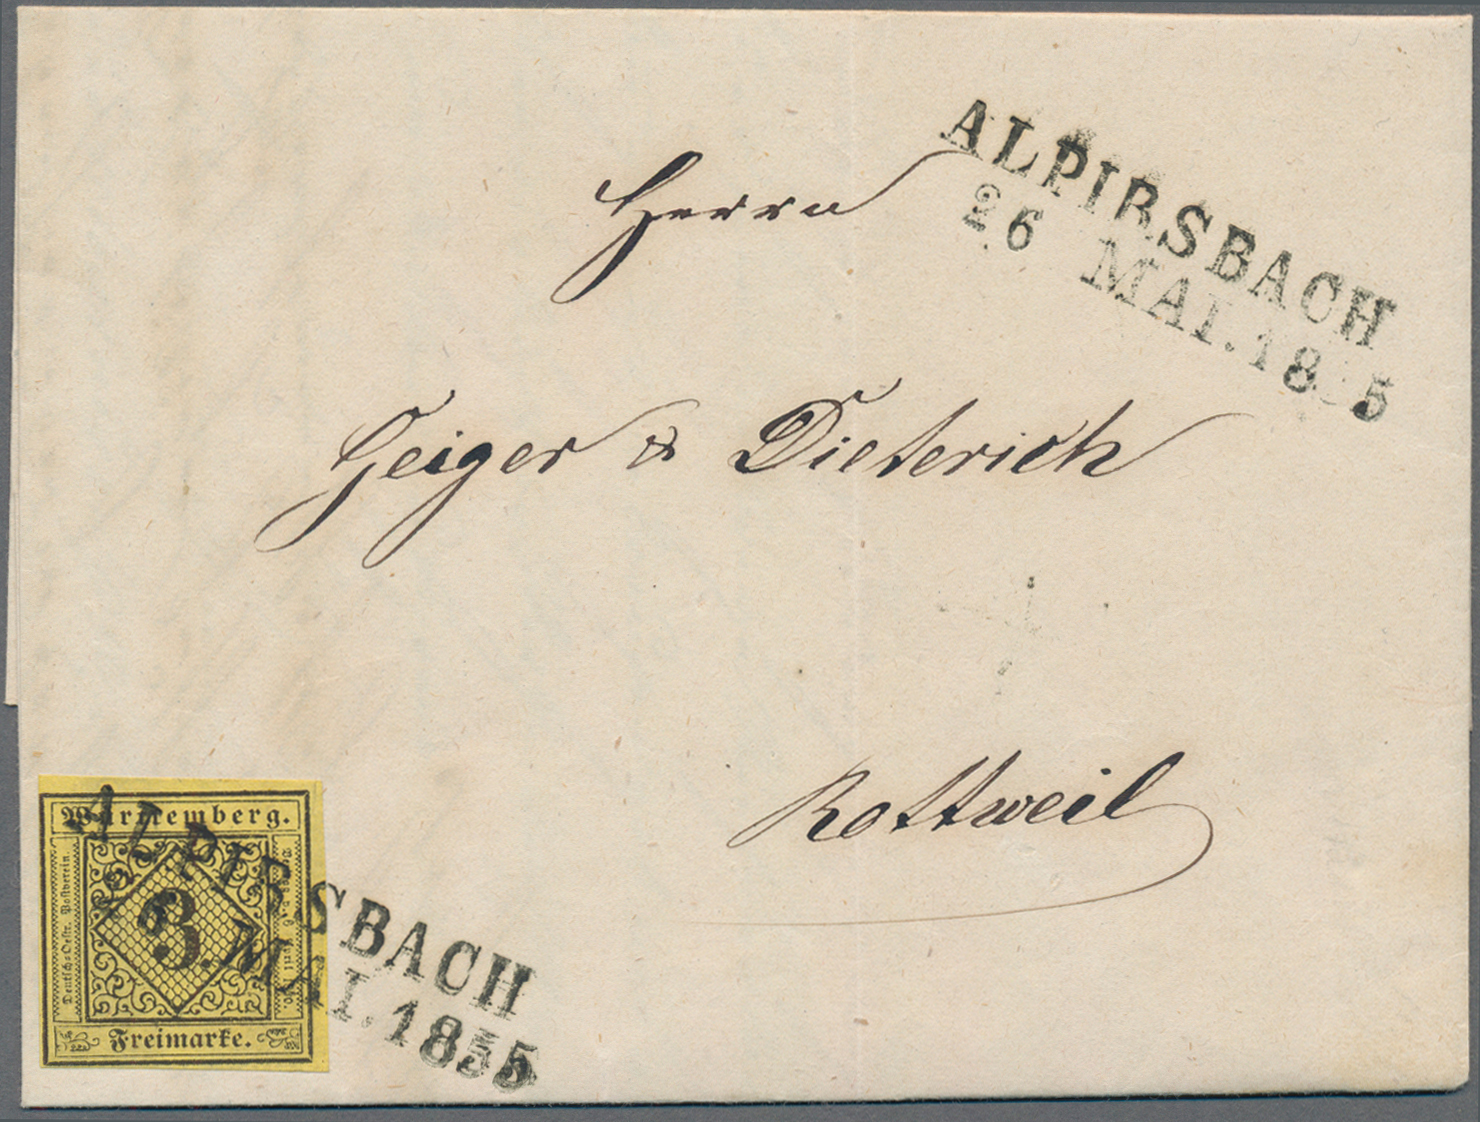 ALPIRSBACH
26 MAI. 1855
Herrn
Geiger & Dieterich
Rottweil
Württemberg.
Deutsch-Oestr. Postverein.
3.
6 April
Freimarke.
ALPIRSBACH
26 MAI. 1855